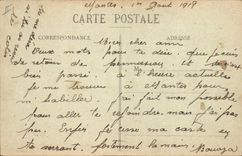 Nantes, 1er Aout 1918
CARTE POSTALE
CORRESPONDANCE
ADRESSE
Mon cher ami
Deux mots pour te dire que je suis
de retour de permission, et
bien passé. A l'heure actuelle
je me trouve à Nantes pour
m'habiller. J'ai fait mon possible
pour aller te rejoindre, mais j'ai pas
pu. Enfin je cesse ma carte en
te serrant fortement la main.